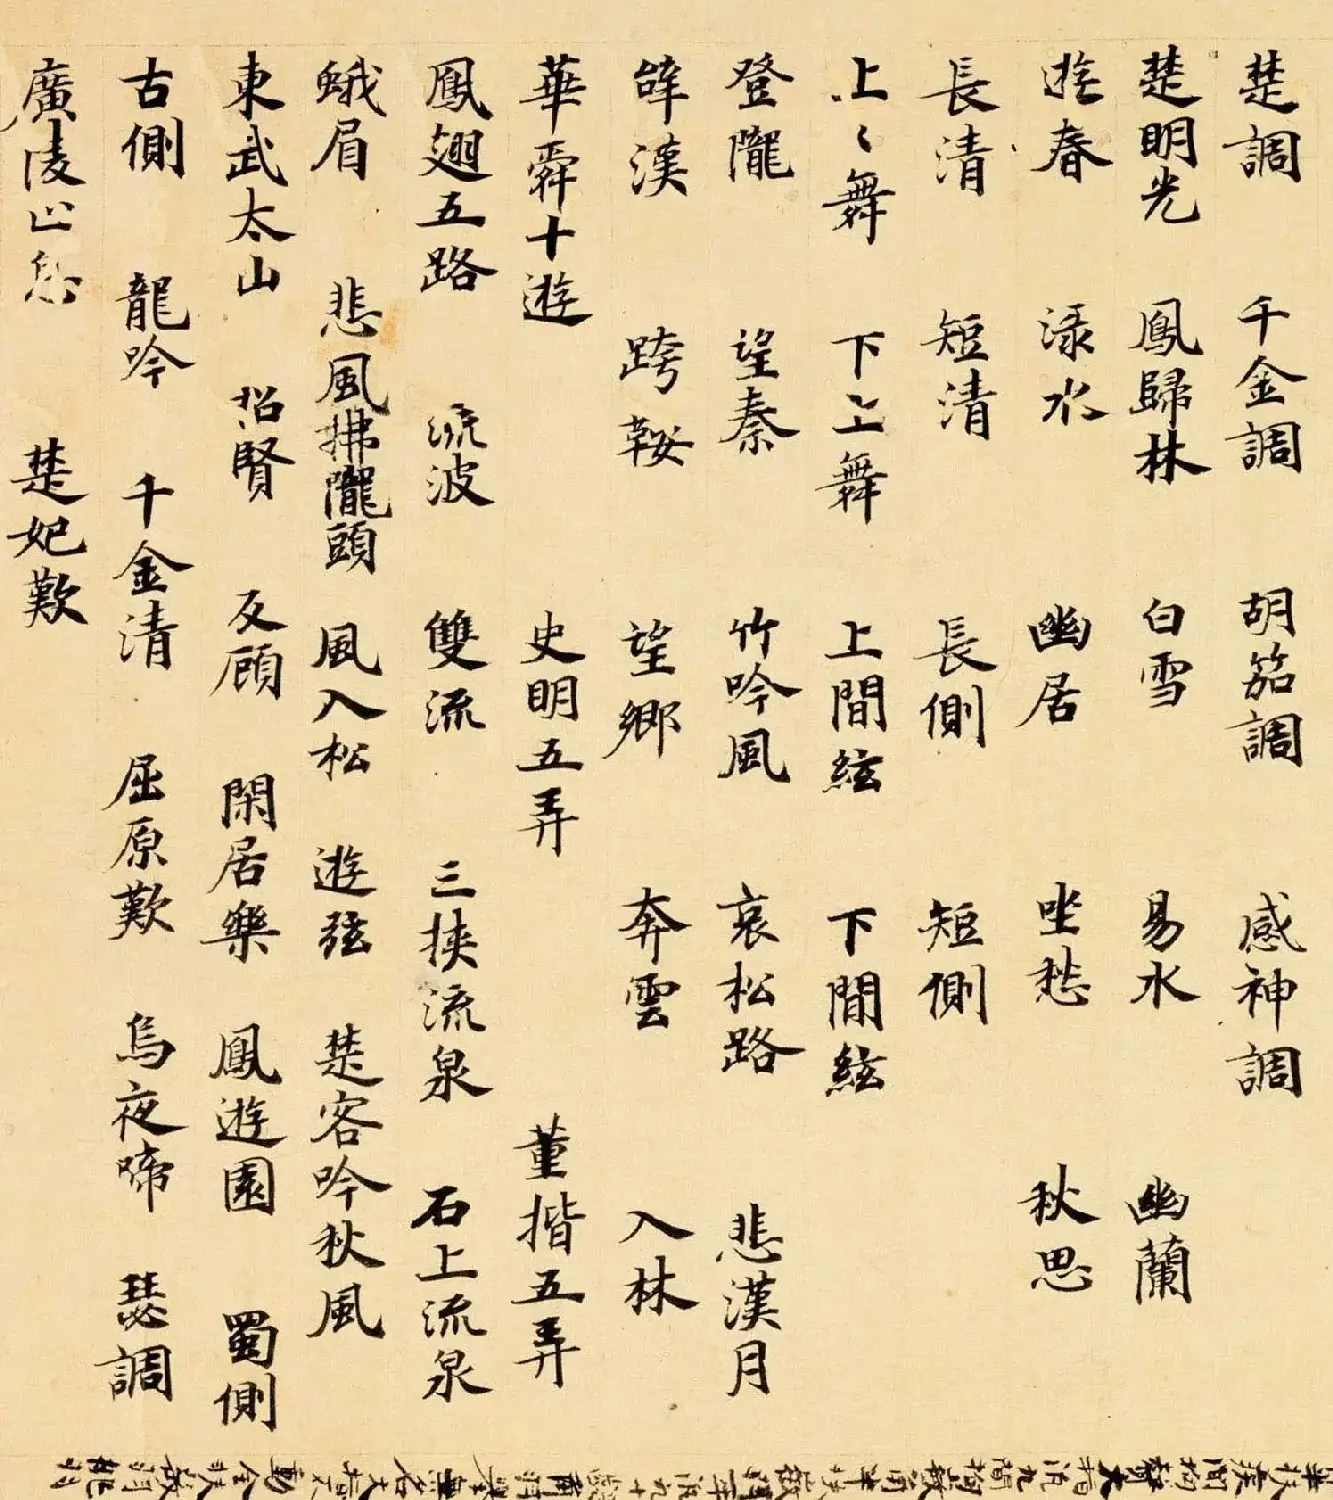 楚調 千金調 胡笳調 感神調
楚明光 鳳歸林 白雪 易水 幽蘭
遊春 淥水 幽居 坐愁 秋思
長清 短清 長側 短側
上〻舞 下上舞 上間絃 下間絃
登隴 望秦 竹吟風 哀松路 悲漢月
辭漢 跨鞍 望鄉 奔雲 入林
華舜十遊 史明五弄 董揩五弄
鳳翅五路 流波 雙流 三挾流泉 石上流泉
蛾眉 悲風拂隴頭 風入松 遊弦 楚客吟秋風
東武太山 招賢 反顧 閑居樂 鳳遊園 蜀側
古側 龍吟 千金清 屈原歎 烏夜啼 瑟調
廣陵止息 楚妃歎